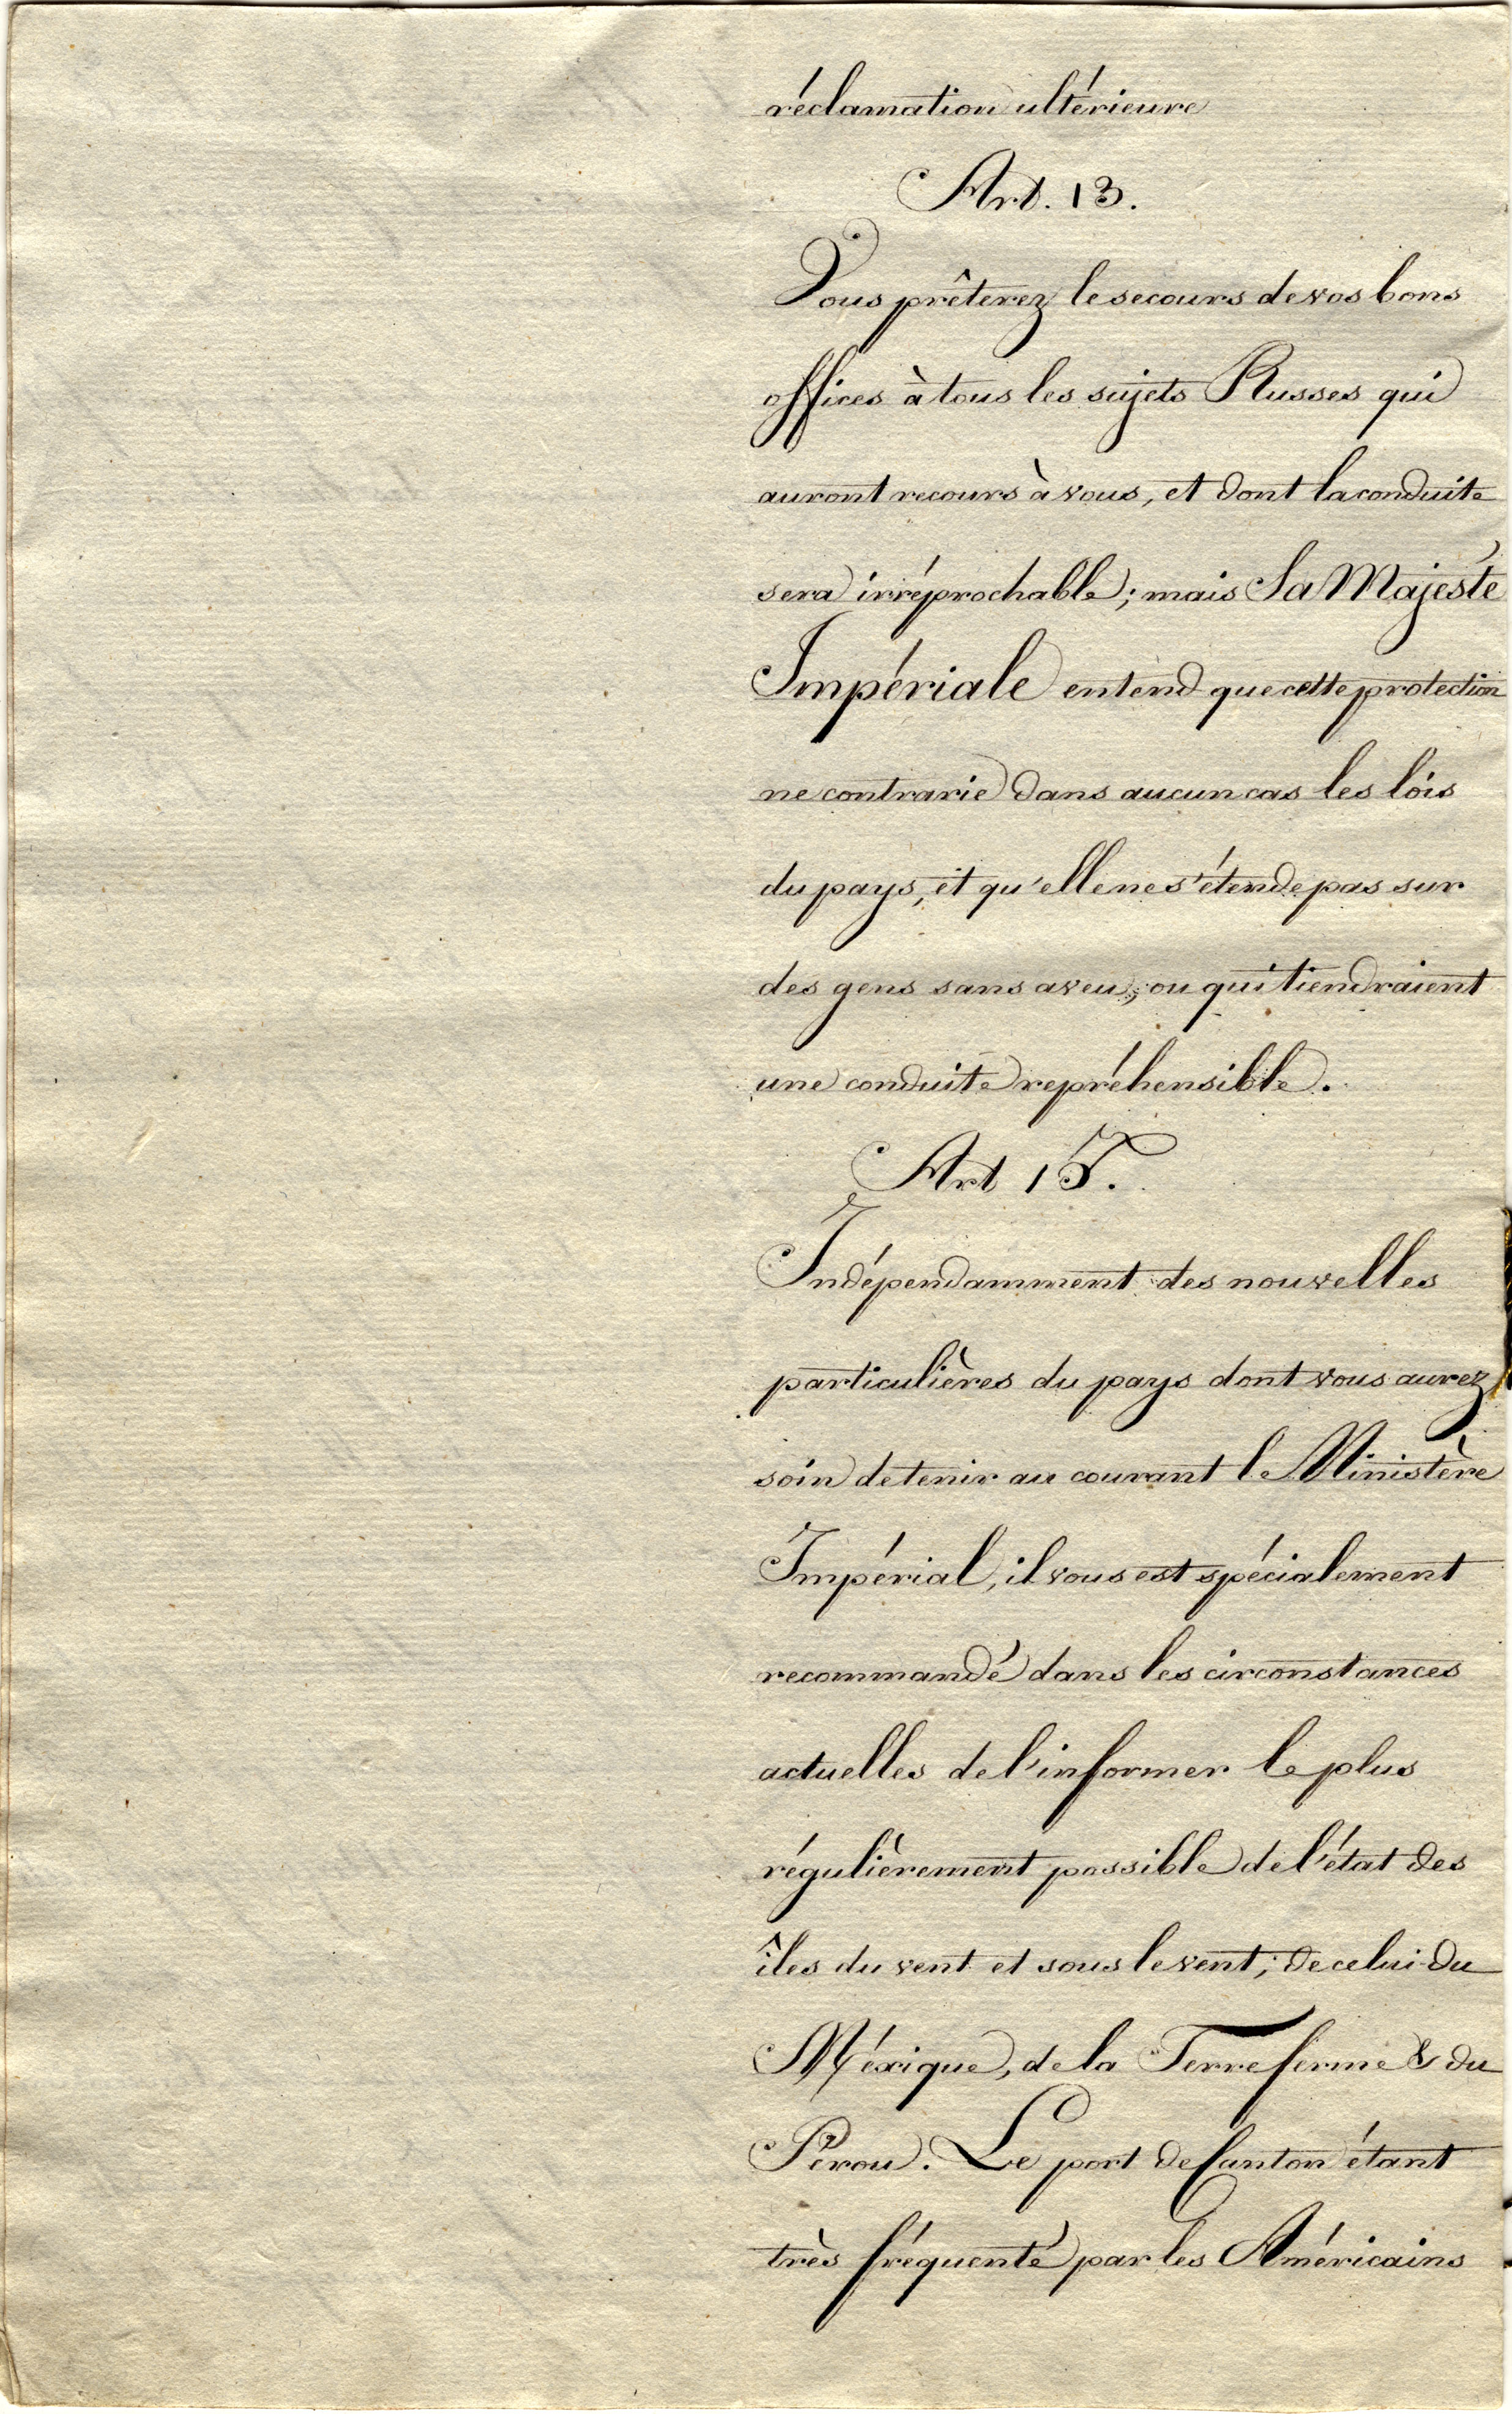 réclamation ultérieure
Art. 13.
Vous prêterez le secours de vos bons
offices à tous les sujets Russes qui
auront recours à vous, et dont la conduite
sera irréprochable; mais Sa Majesté
Impériale entend que cette protection
ne contrarie dans aucun cas les lois
du pays, et qu'elle ne s'étende pas sur
des gens sans aveu, ou qui tiendraient
une conduite repréhensible.
Art 15.
Indépendamment des nouvelles
particulières du pays dont vous aurez
soin de tenir au courant le Ministère
Impérial, il vous est spécialement
recommandé dans les circonstances
actuelles de l'informer le plus
régulièrement possible de l'état des
îles du vent et sous le vent; de celui du
Méxique, de la Terre ferme & du
Pérou. Le port de Canton étant
très fréquenté par les Américains